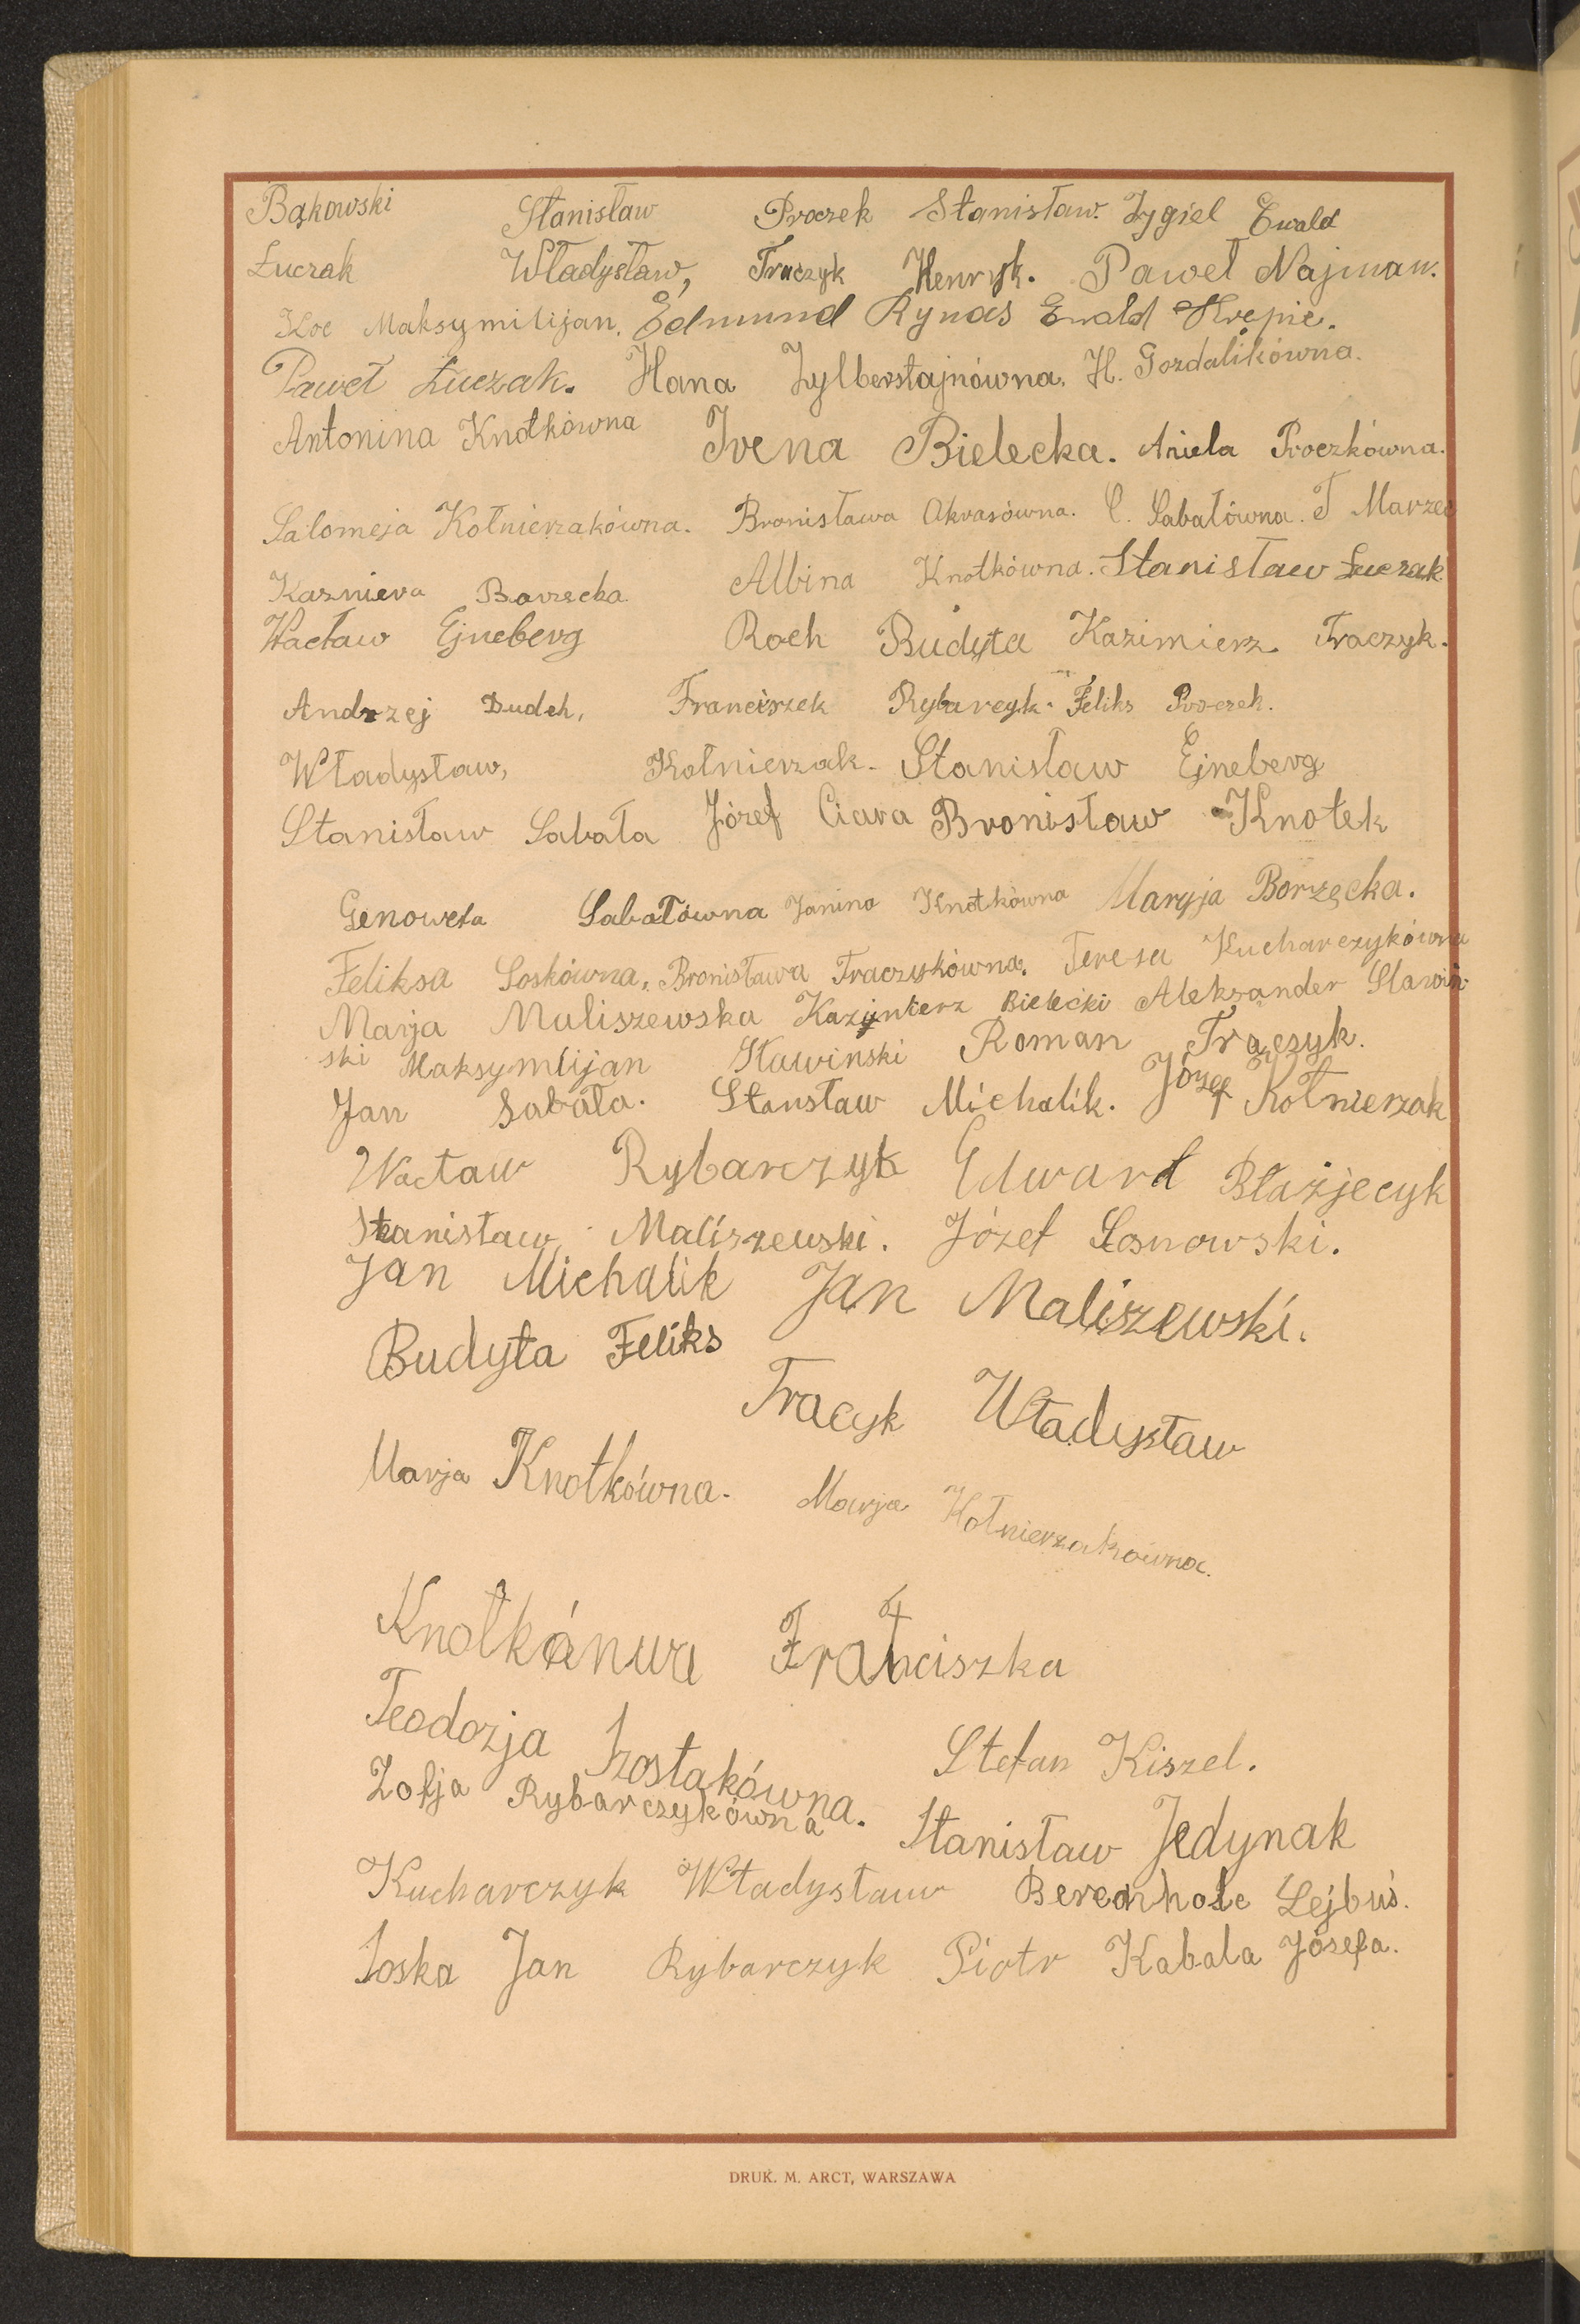 Bąkowski Stanisław Proczek Stanisław. Zygiel Ewald
Łuczak Władysław, Traczyk Henryk. Paweł Najman.
Koc Maksymilijan. Edmund Rynas Ewald Krepic.
Paweł Łuczak. Hana Zylbersztajnówna. H. Gozdalikówna.
Antonina Knotkówna Irena Bielecka. Aniela Proczkówna.
Salomeja Kołnierzakówna. Bronisława Okrasówna. C. Sabałówna. T Marzec
Kazniera Borzecka Albina Knotkówna. Stanisław Łuczak
Wacław Ejneberg Roch Budyta Kazimierz Traczyk.
Andrzej Dudek, Franciszek Rybarcyk. Feliks Proczek.
Władysław, Kołnierzak. Stanisław Ejneberg
Stanisław Sabała Józef Ciara Bronisław Knotek
Genowefa Sabałówna Janina Knotkówna Maryja Borzęcka.
Feliksa Soskówna, Bronisława Traczykówna. Teresa Kucharczykówna
Marja Maliszewska Kazimierz Bielecki Aleksander Sławiń
ski Maksymlijan Sławinski Roman Traczyk.
Jan Sabała. Stansław Michalik. Józef Kołnierzak
Wacław Rybarczyk Edward Błażjecyk
Stanisław Maliszewski. Józef Sosnowski.
Jan Michalik Jan Maliszewski.
Budyta Feliks
Tracyk Władysław
Marja Knotkówna. Marja Kołnierzakówna.
Franciszka
Teodozja Szostakówna. Stefan Kiszel.
Zofja Rybarczykówna Stanisław Jedynak
Kucharczyk Władysław Lejbuś.
Soska Jan Rybarczyk Piotr Kabala Józefa.
DRUK. M. ARCT, WARSZAWA